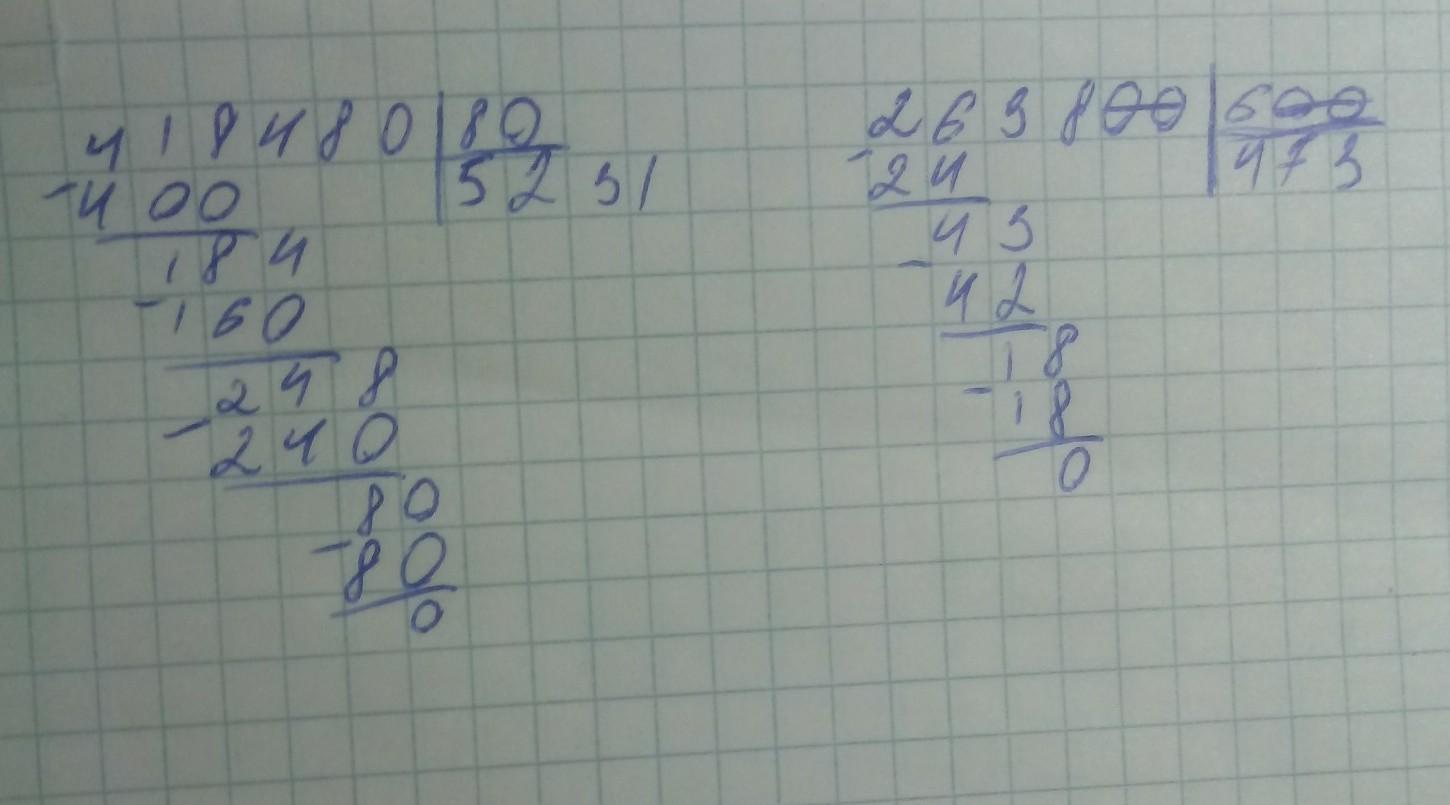 418480 | 80
-400 | 5231
184
-160
248
-240
80
-80
0
263800 | 600
-24 | 473
43
-42
18
-18
0